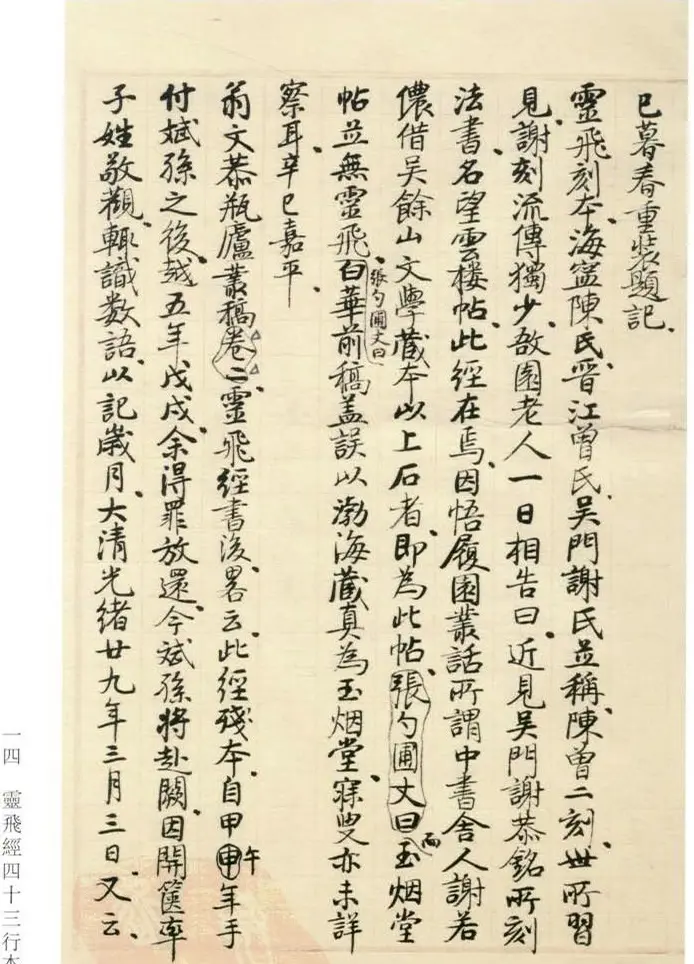 巳暮春重裝題記
靈飛刻本海寧陳氏晉江曾氏吳門謝氏並稱陳曾二刻世所習
見謝刻流傳獨少敔園老人一日相告曰近見吳門謝恭銘所刻
法書名望雲楼帖此經在焉因悟履園叢話所謂中書舍人謝若
儂借吳餘山文學蔵本以上石者即為此帖張勺圃丈曰而玉烟堂
帖並無靈飛張勺圃丈曰白華前稿盖誤以渤海蔵真為玉烟堂寐叟亦未詳
察耳辛巳嘉平
翁文恭瓶廬叢稿卷二靈飛經書後畧云此經殘本自甲申午年手
付斌孫之後越五年戊戌余得罪放還今斌孫將赴闕因開篋率
子姓敬觀輙識数語以記歳月大清光緒廿九年三月三日又云
一四 靈飛經四十三行本